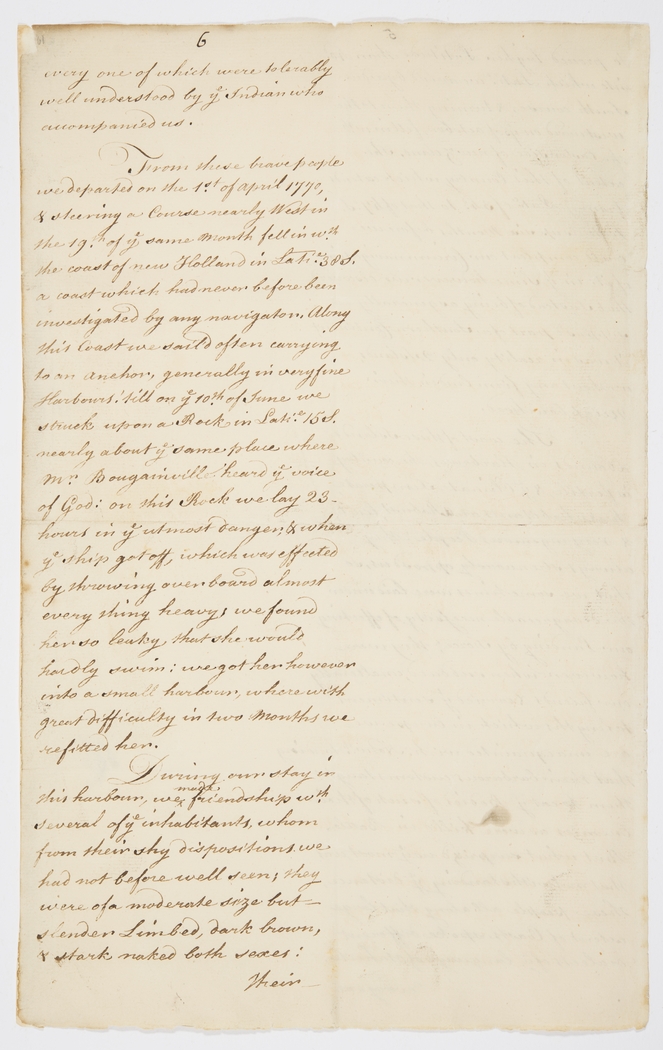 6
every one of which were tolerably
well understood by yͤ Indian who
accompanied us.
From these brave people
we departed on the 1.st of April 1770,
& steering a Course nearly West in
the 19.th of yͤ same Month fell in wth
the coast of new Holland in Lati:e 38 S.
a coast which had never before been
investigated by any navigator. Along
this Coast we sail'd often carrying
to an anchor, generally in very fine
Harbours: till on yͤ 10th of June we
struck upon a Rock in Lati:e 15 S.
nearly about yͤ same place where
Mr. Bougainvill heard yͤ voice
of God: on this Rock we lay 23-
hours in yͤ utmost danger, & when
yͤ ship got off, which was effected
by throwing over board almost
every thing heavy; we found
her so leaky that she would
hardly swim: we got her however
into a small harbour, where with
great difficulty in two Months we
refitted her.
During our stay in
this harbour, we made friendship wth
several of yͤ inhabitants, whom
from their shy dispositions we
had not before well seen; they
were of a moderate size but-
slender Limbed, dark brown,
& stark naked both sexes:
Their